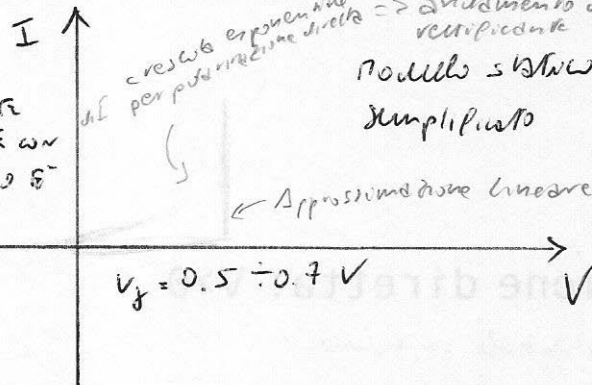 I
crescita esponenziale => andamento
di I per polarizzazione diretta
rettificante
Modello statico
semplificato
con
Approssimazione lineare
Vγ = 0.5 ÷ 0.7 V
V
one diretta: V>0